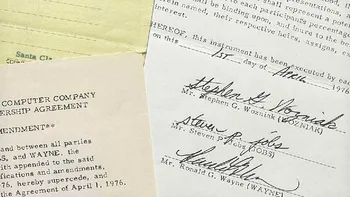 Santa Cl
COMPUTER COMPANY
ERSHIP AGREEMENT
MENDMENT**
and between all parties
BS, and WAYNE, the
ith appended to the said
ifications and amendments,
76, hereby supercede, and
he Agreement of April 1, 1976.
shall represent a potenti
each participants percentage
ll be binding upon, and inure to the be
their respective heirs, assigns, e
HEREOF, this instrument has been executed by each
on this 1ST day of April 1976
Stephen G Wozniak
Mr. Stephen G. Wozniak (WOZNIAK)
steven p. jobs
Mr. Steven P. Jobs (JOBS)
Mr. Ronald G. Wayne (WAYNE)